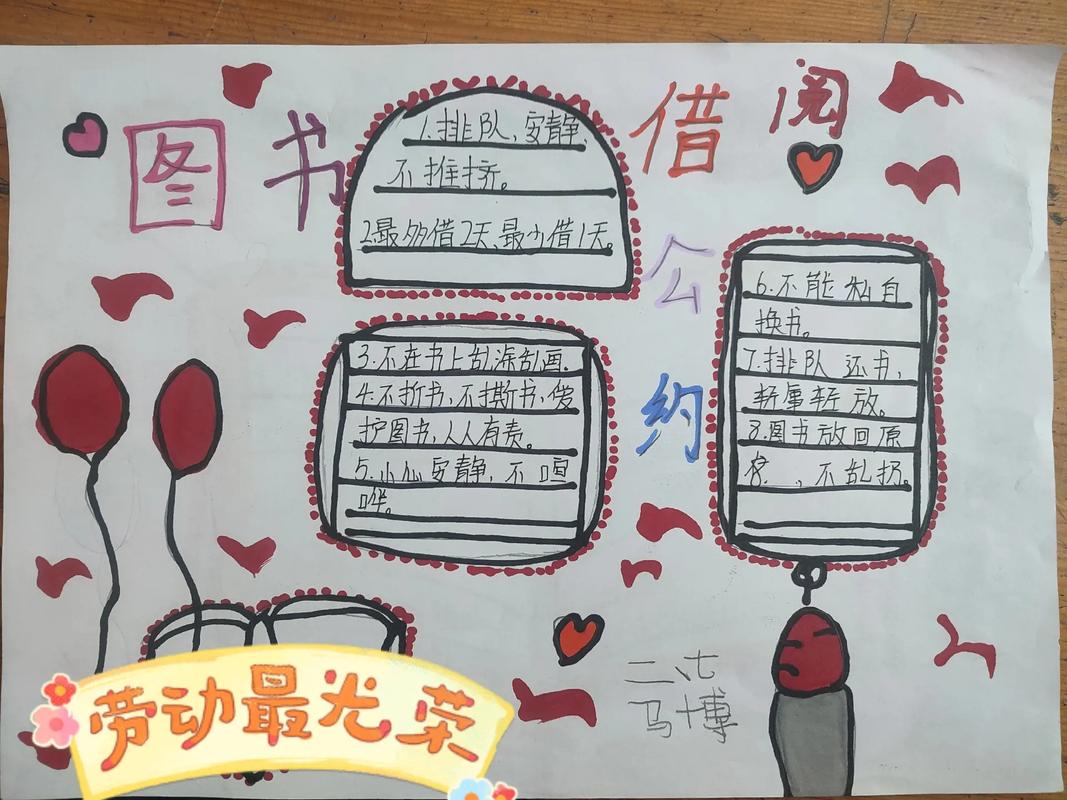 图书借阅
公约
1.排队,安静、
不推挤。
2.最多借2天,最少借1天。
3.不在书上乱涂乱画.
4.不折书,不撕书,爱
护图书,人人有责。
5.小心安静,不喧
哗。
6.不能私自
换书。
7.排队还书,
轻拿轻放。
8.图书放回原
,不乱扔。
二
马博
劳动最光荣